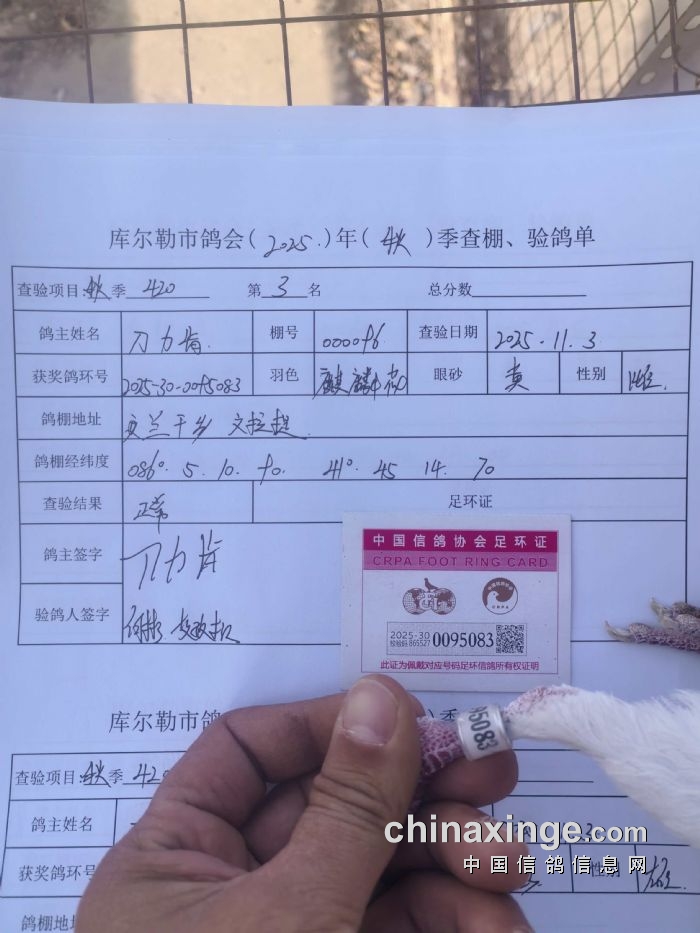 库尔勒市鸽会(2025.)年(秋)季查棚、验鸽单
查验项目:秋季 420 第 3 名 总分数
鸽主姓名 刀力肯 棚号 000096 查验日期 2025.11.3
获奖鸽环号 2025-30-0095083 羽色 麒麟花 眼砂 黄 性别 雌.
鸽棚地址 兰干乡
鸽棚经纬度 086° 5. 10. 90. 41° 45 14. 70
查验结果 正常 足环证
鸽主签字 刀力肯
验鸽人签字
中国信鸽协会足环证
CRPA FOOT RING CARD
CRPA
2025-30
校验码 865527
0095083
此证为佩戴对应号码足环信鸽所有权证明
95083
库尔勒市鸽 季
查验项目:秋季 42
鸽主姓名 3
获奖鸽环号 性别 雄
鸽棚地
chinaxinge.com
中国信鸽信息网